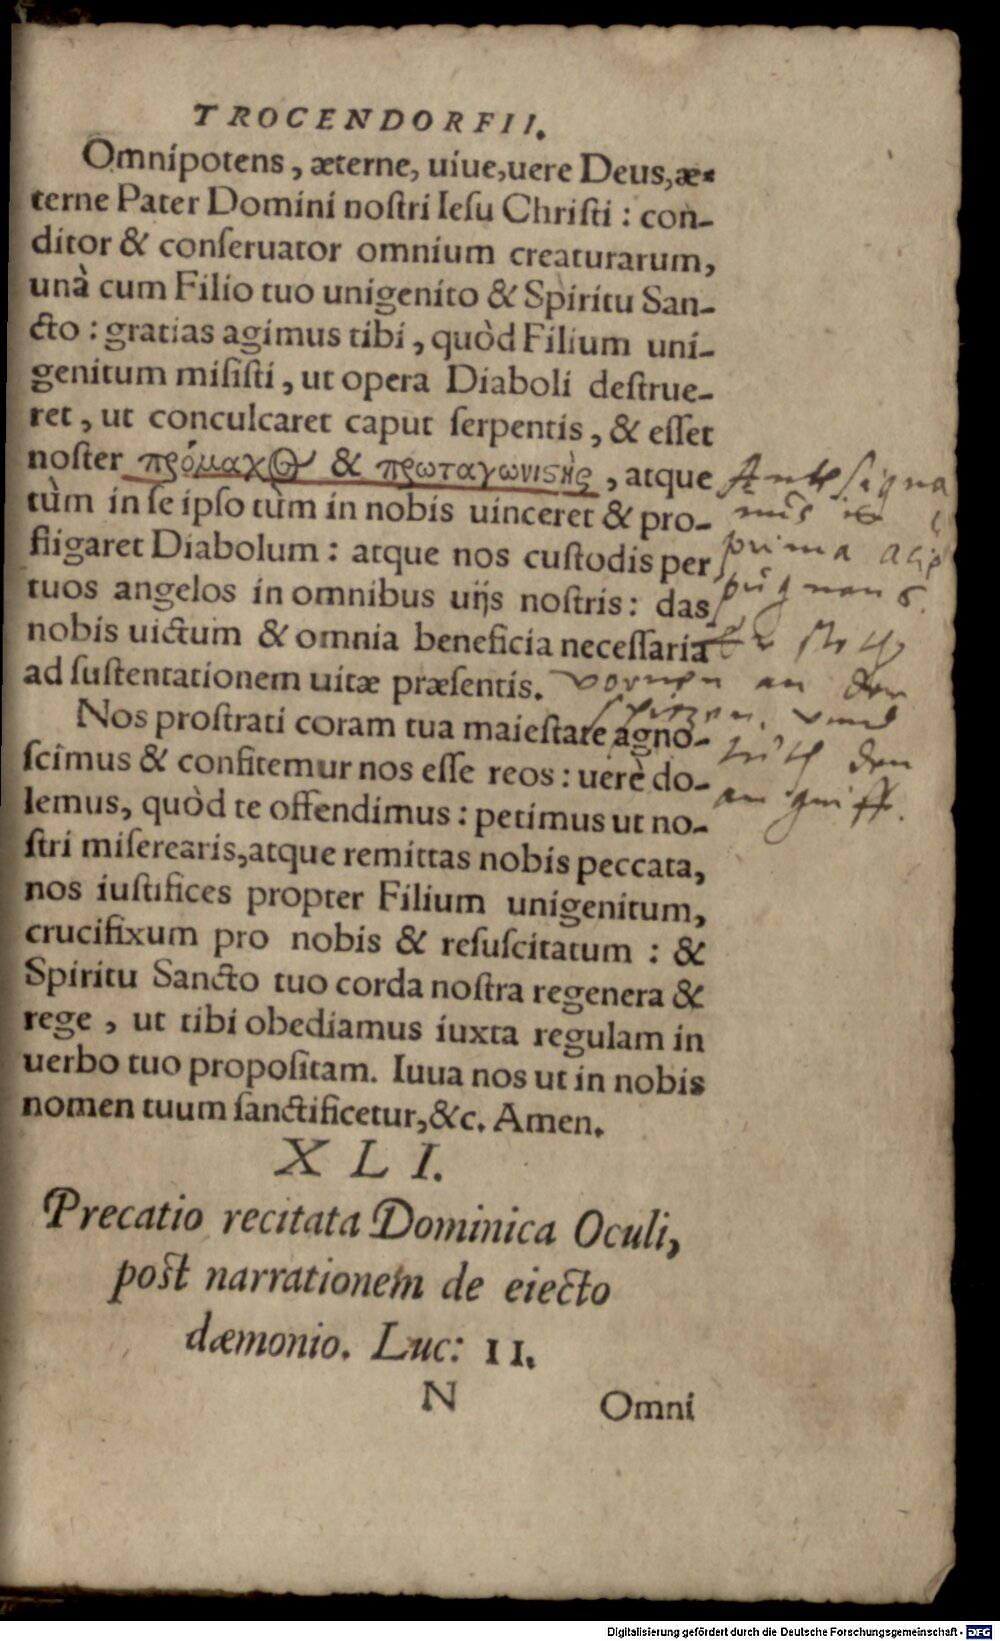 TROCENDORFII.
Omnipotens, æterne, uiue, uere Deus, æ-
terne Pater Domini noſtri Ieſu Chriſti : con-
ditor & conſeruator omnium creaturarum,
unà cum Filio tuo unigenito & Spiritu San-
cto : gratias agimus tibi, quòd Filium uni-
genitum miſiſti, ut opera Diaboli deſtrue-
ret, ut conculcaret caput ſerpentis, & eſſet
noſter πρόμαχος & πρωταγωνιςὴς, atque
tùm in ſe ipſo tùm in nobis uinceret & pro-
fligaret Diabolum : atque nos cuſtodis per
tuos angelos in omnibus uijs noſtris: das
nobis uictum & omnia beneficia neceſſaria
ad ſuſtentationem uitæ præſentis.
Nos proſtrati coram tua maieſtate agno-
ſcimus & confitemur nos eſſe reos : uerè do-
lemus, quòd te offendimus : petimus ut no-
ſtri miſerearis, atque remittas nobis peccata,
nos iuſtifices propter Filium unigenitum,
crucifixum pro nobis & reſuſcitatum : &
Spiritu Sancto tuo corda noſtra regenera &
rege, ut tibi obediamus iuxta regulam in
uerbo tuo propoſitam. Iuua nos ut in nobis
nomen tuum ſanctificetur, &c. Amen.
Anteſigna
nus
prima acie
pugnans.
vornen an der
ſpitzen. vnnd
den
angriff.
XLI.
Precatio recitata Dominica Oculi,
post narrationem de eiecto
dæmonio. Luc: 11.
N Omni
Digitalisierung gefördert durch die Deutsche Forschungsgemeinschaft - DFG